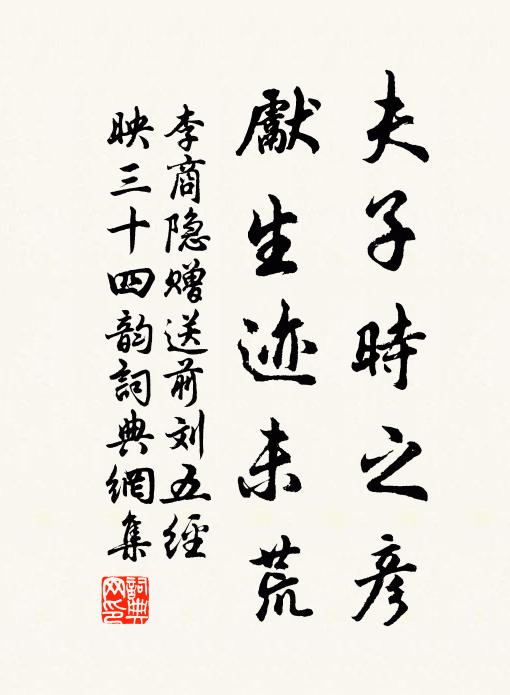 夫子時之彥
獻生迹未荒
李商隐赠送前刘五經
映三十四韵詞典網集
詞典
网印